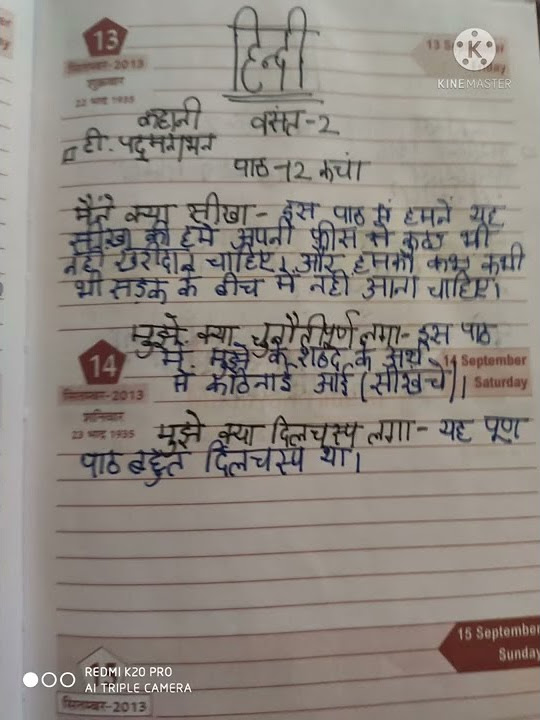 13
हिन्दी
13 S
day
सितम्बर-2013
शुक्रवार
22 भाद्र 1935
KINEMASTER
कहानी वसंत-2
टी. पद्मनाभन
पाठ-12 कंचा
मैंने क्या सीखा - इस पाठ में हमने यह
सीखा की हमे अपनी फ़ीस से कुछ भी
नही खरीदना चाहिए। और हमको कभी कभी
भी सड़क के बीच में नही आना चाहिए।
मुझे क्या चुनौतीपूर्ण लगा - इस पाठ
में मुझे के शब्द के अर्थ
14
14 September
में कठिनाई आई (सीखचे)।
Saturday
सितम्बर-2013
शनिवार
23 भाद्र 1935
मुझे क्या दिलचस्प लगा - यह पूण
पाठ बहुत दिलचस्प था।
15 September
Sunday
REDMI K20 PRO
AI TRIPLE CAMERA
सितम्बर-2013